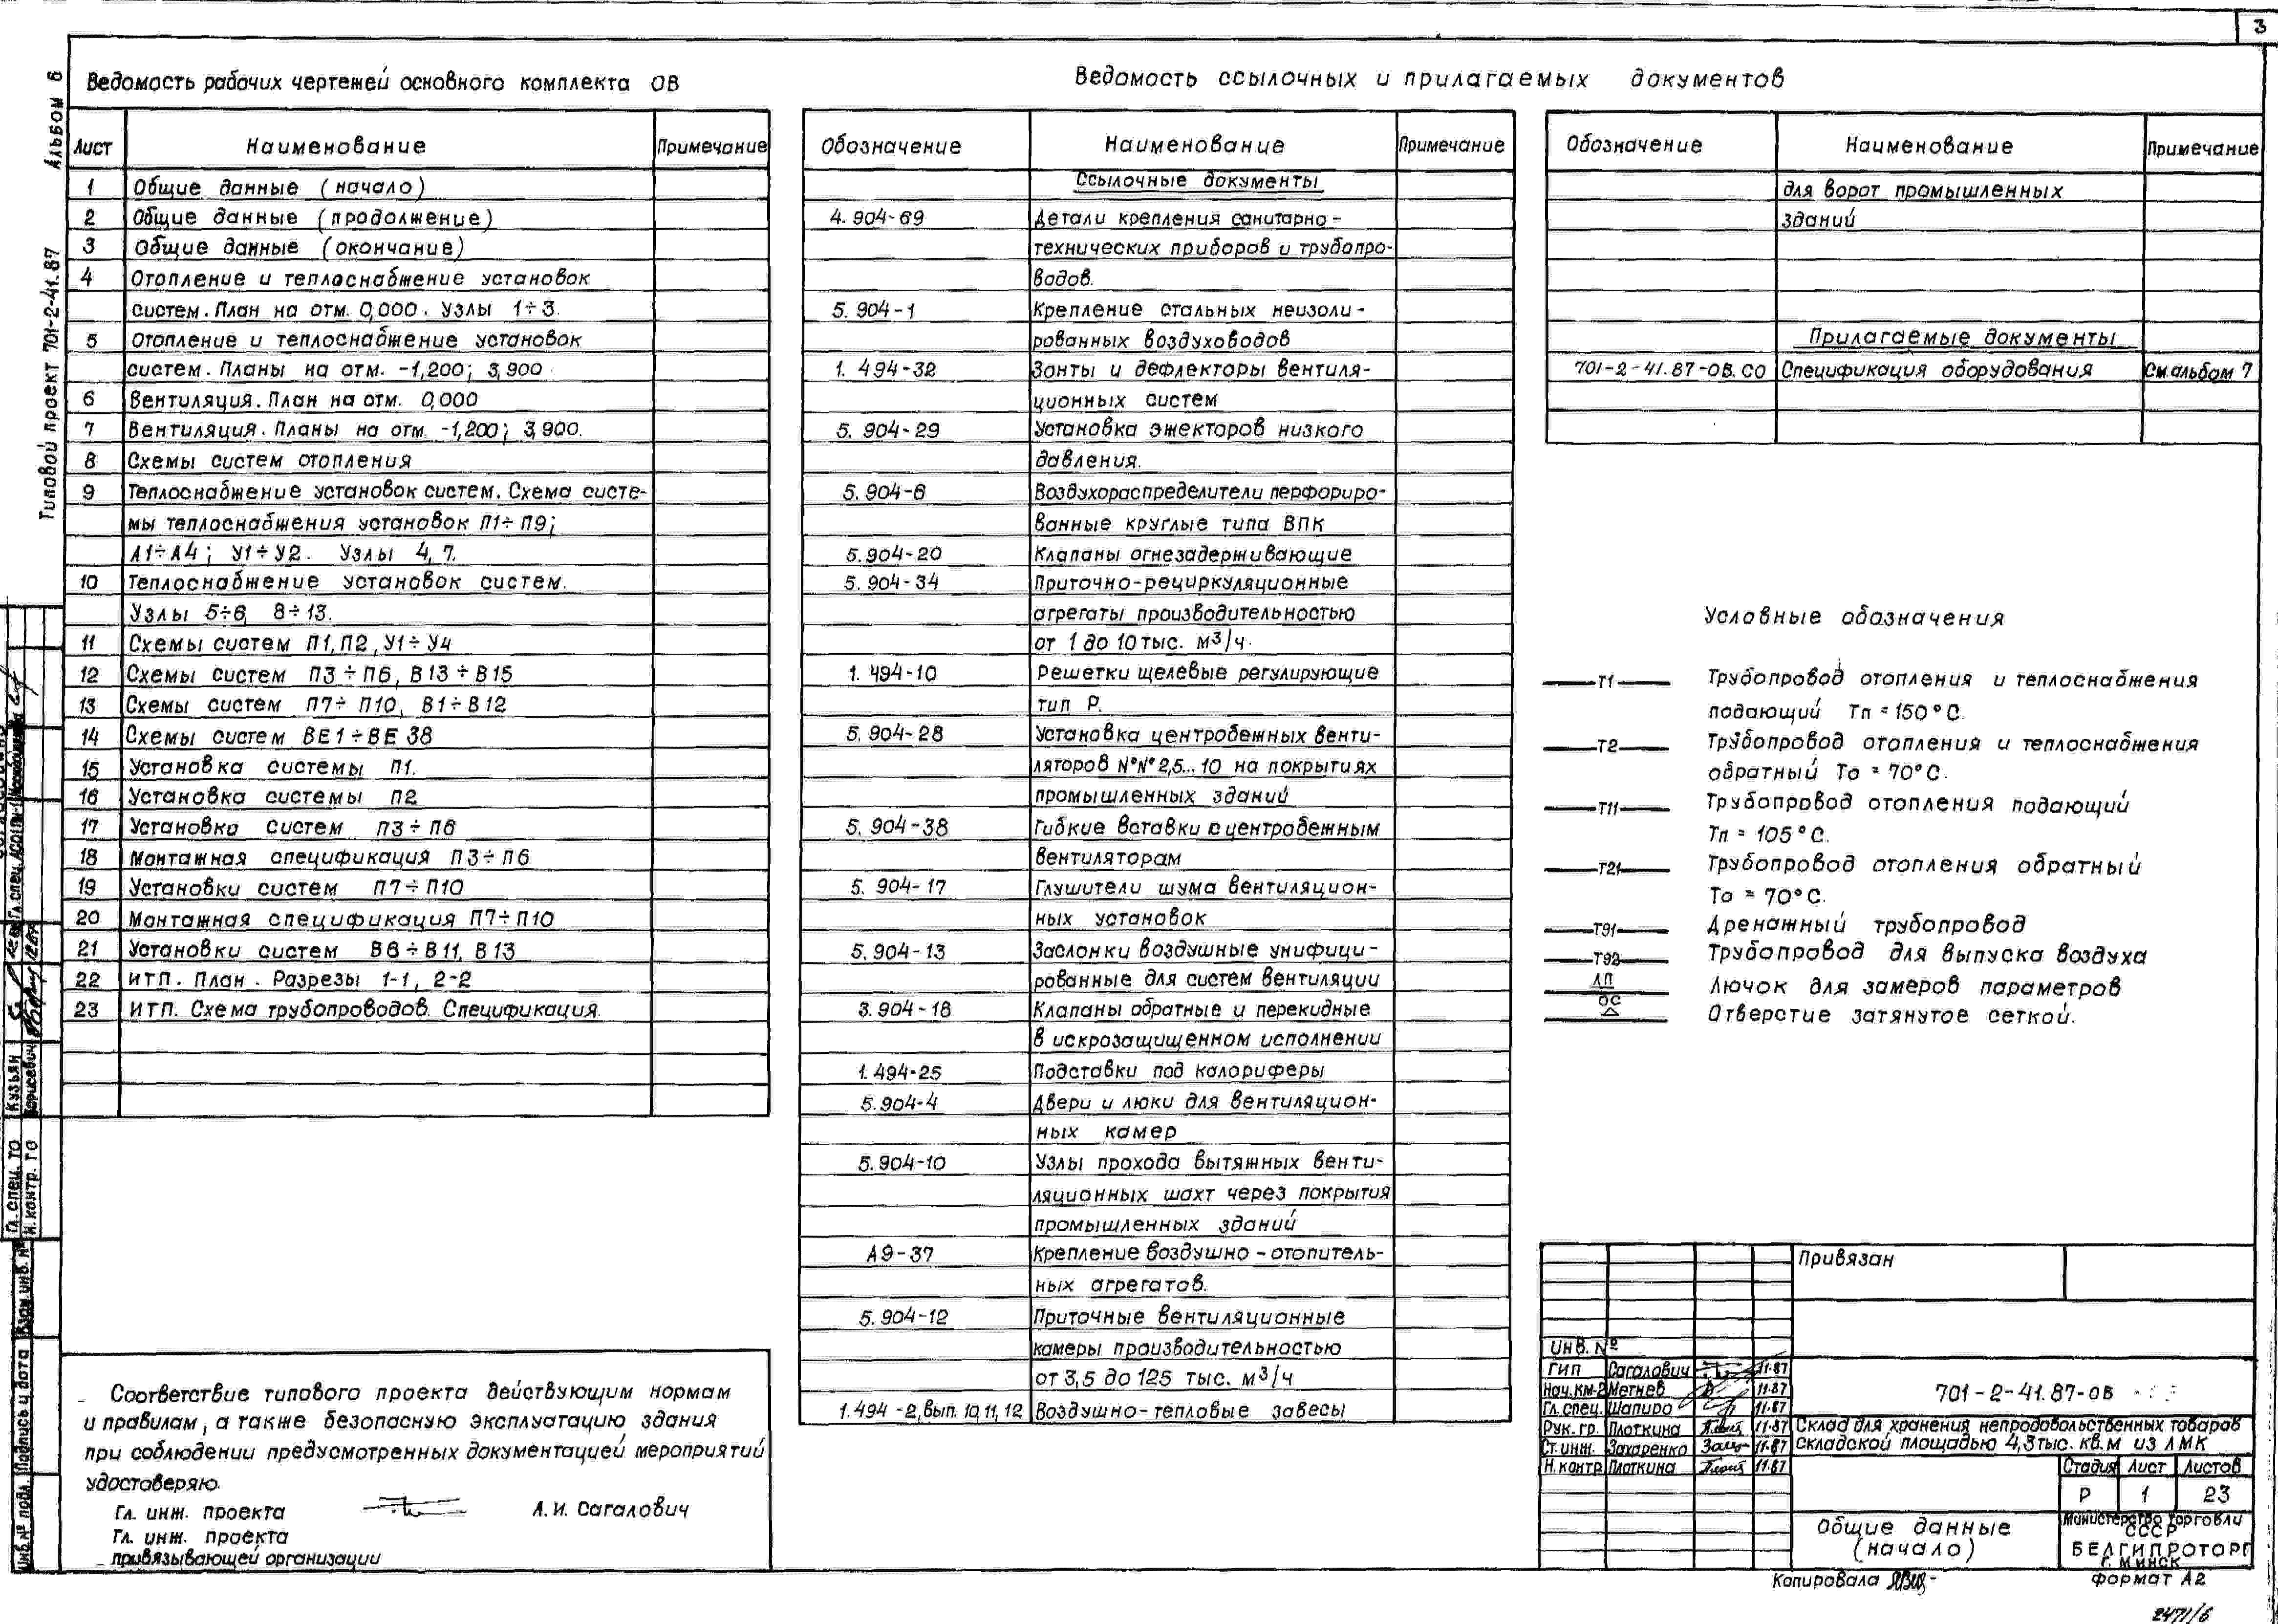 3
Альбом 6
Типовой проект 701-2-41.87
Ведомость рабочих чертежей основного комплекта ОВ
Лист Наименование Примечание
1 Общие данные (начало)
2 Общие данные (продолжение)
3 Общие данные (окончание)
4 Отопление и теплоснабжение установок
систем. План на отм. 0,000. Узлы 1÷3.
5 Отопление и теплоснабжение установок
систем. Планы на отм. -1,200; 3,900
6 Вентиляция. План на отм. 0,000
7 Вентиляция. Планы на отм. -1,200; 3,900.
8 Схемы систем отопления
9 Теплоснабжение установок систем. Схема систе-
мы теплоснабжения установок П1÷П9;
А1÷А4; У1÷У2. Узлы 4, 7.
10 Теплоснабжение установок систем.
Узлы 5÷6, 8÷13.
11 Схемы систем П1, П2, У1÷У4
12 Схемы систем П3÷П6, В13÷В15
13 Схемы систем П7÷П10, В1÷В12
14 Схемы систем ВЕ1÷ВЕ38
15 Установка системы П1.
16 Установка системы П2
17 Установка систем П3÷П6
18 Монтажная спецификация П3÷П6
19 Установки систем П7÷П10
20 Монтажная спецификация П7÷П10
21 Установки систем В6÷В11, В13
22 ИТП. План. Разрезы 1-1, 2-2
23 ИТП. Схема трубопроводов. Спецификация.
Соответствие типового проекта действующим нормам
и правилам, а также безопасную эксплуатацию здания
при соблюдении предусмотренных документацией мероприятий
удостоверяю.
Гл. инж. проекта А.И. Сагалович
Гл. инж. проекта
привязывающей организации
Ведомость ссылочных и прилагаемых документов
Обозначение Наименование Примечание
Ссылочные документы
4.904-69 Детали крепления санитарно-
технических приборов и трубопро-
водов.
5.904-1 Крепление стальных неизоли-
рованных воздуховодов
1.494-32 Зонты и дефлекторы вентиля-
ционных систем
5.904-29 Установка эжекторов низкого
давления.
5.904-6 Воздухораспределители перфориро-
ванные круглые типа ВПК
5.904-20 Клапаны огнезадерживающие
5.904-34 Приточно-рециркуляционные
агрегаты производительностью
от 1 до 10 тыс. м3/ч.
1.494-10 Решетки щелевые регулирующие
тип Р.
5.904-28 Установка центробежных венти-
ляторов №№ 2,5...10 на покрытиях
промышленных зданий
5.904-38 Гибкие вставки с центробежным
вентиляторам
5.904-17 Глушители шума вентиляцион-
ных установок
5.904-13 Заслонки воздушные унифици-
рованные для систем вентиляции
3.904-18 Клапаны обратные и перекидные
в искрозащищенном исполнении
1.494-25 Подставки под калориферы
5.904-4 Двери и люки для вентиляцион-
ных камер
5.904-10 Узлы прохода вытяжных венти-
ляционных шахт через покрытия
промышленных зданий
А9-37 Крепление воздушно-отопитель-
ных агрегатов.
5.904-12 Приточные вентиляционные
камеры производительностью
от 3,5 до 125 тыс. м3/ч
1.494-2, вып. 10, 11, 12 Воздушно-тепловые завесы
Обозначение Наименование Примечание
для ворот промышленных
зданий
Прилагаемые документы
701-2-41.87-ОВ.СО Спецификация оборудования См. альбом 7
Условные обозначения
Т1 Трубопровод отопления и теплоснабжения
подающий Тп = 150°С.
Т2 Трубопровод отопления и теплоснабжения
обратный То = 70°С.
Т11 Трубопровод отопления подающий
Тп = 105°С.
Т21 Трубопровод отопления обратный
То = 70°С.
Т91 Дренажный трубопровод
Т92 Трубопровод для выпуска воздуха
ЛП Лючок для замеров параметров
ОС Отверстие затянутое сеткой.
Привязан
Инв. №
ГИП Сагалович 11.87
Нач. КМ-2 Метнев 11.87
Гл. спец. Шапиро 11.87
Рук. гр. Плоткина 11.87
Ст. инж. Захаренко 11.87
Н. контр Плоткина 11.87
701-2-41.87-ОВ
Склад для хранения непродовольственных товаров
складской площадью 4,3 тыс. кв.м из ЛМК
Стадия Лист Листов
Р 1 23
Общие данные
(начало)
Министерство торговли
СССР
БЕЛГИПРОТОРГ
г. Минск
Копировала
формат А2
2471/6
Гл. спец. ТО Кузьян
Н. контр. ТО Борисевич
Инв. № подл. Подпись и дата Взам. инв. №